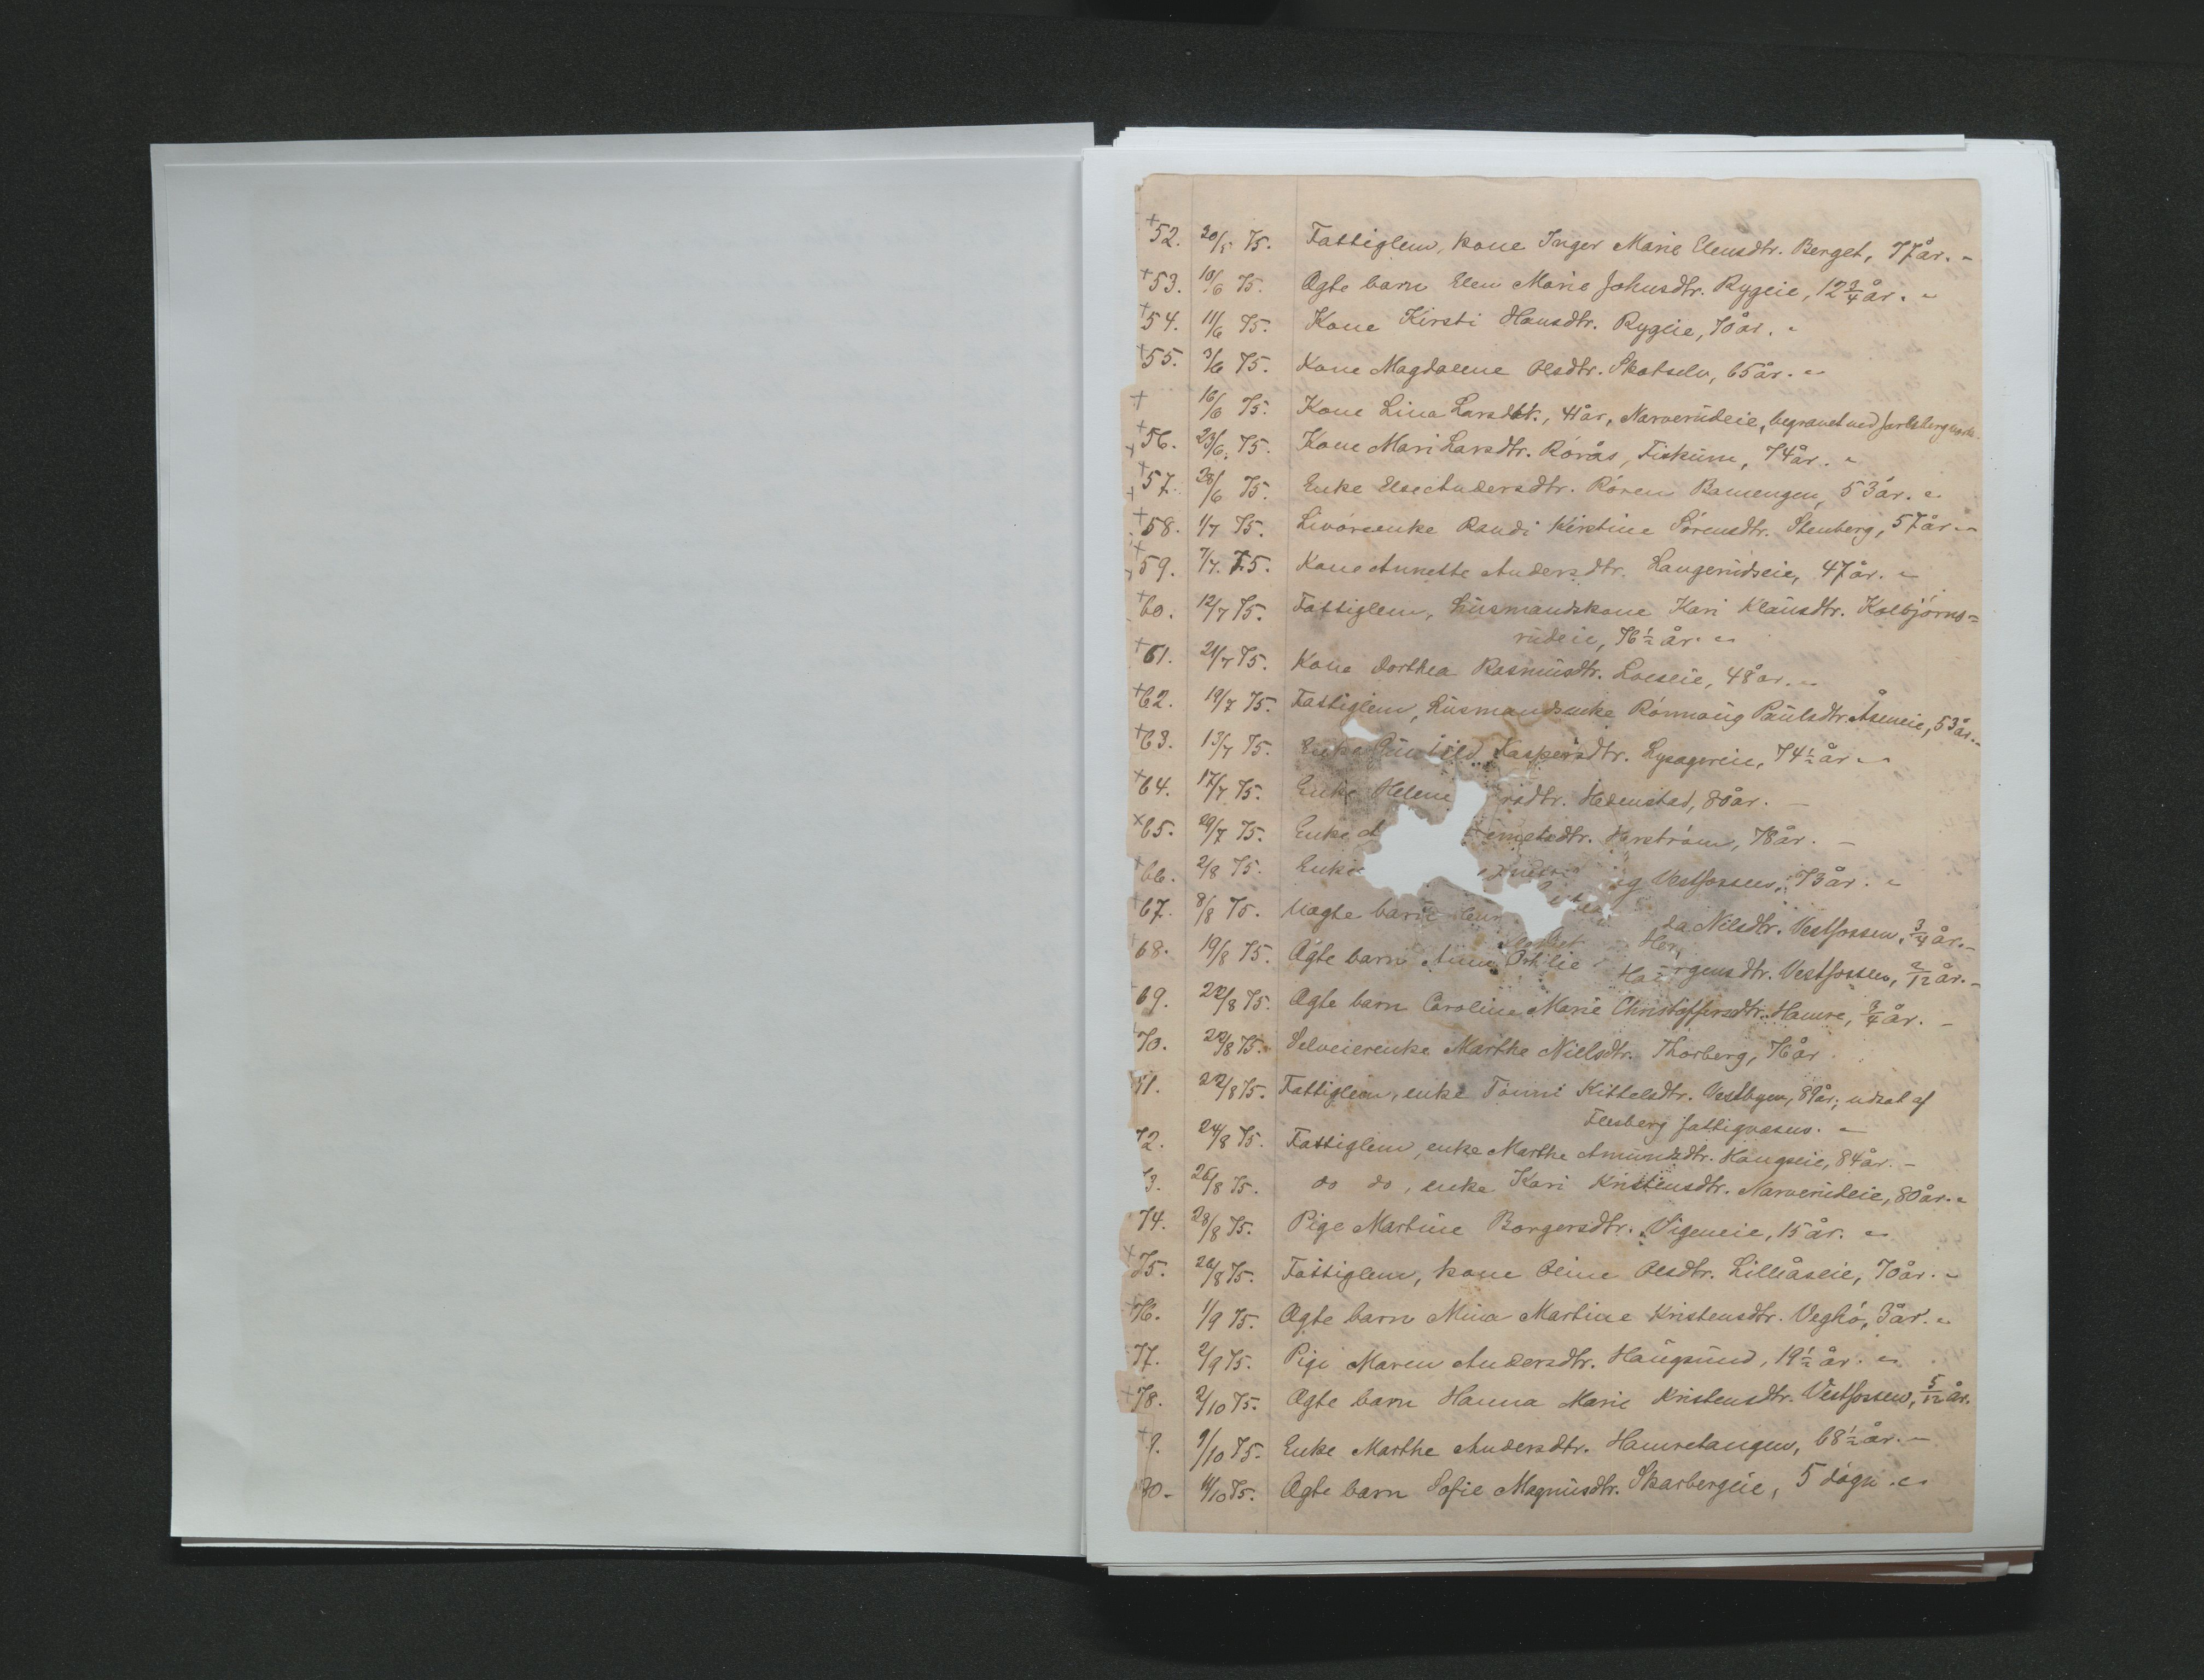 +52. 20/5 75. Fattiglem, kone Inger Marie Elensdtr. Berget, 77 år. -
+53. 10/6 75. Ægte barn Elen Marie Johnsdtr. Rygeie, 12 3/4 år. -
+54. 11/6 75. Kone Kirsti Hansdtr. Rygeie, 70 år. -
+55. 3/6 75. Kone Magdalene Olsdtr. Skotselv, 65 år. -
+ 16/6 75. Kone Lina Larsdtr., 41 år, Narverudeie, begravet ved Jarlsberg
+56. 23/6. 75. Kone Mari Larsdtr. Rørås, Fiskum, 74 år. -
+57. 28/6 75. Enke Else Andersdtr. Røren 53 år. -
+58. 1/7 75. Livøreenke Randi Kirstine Sørensdtr. Stenberg, 57 år -
+59. 7/7. 75. Kone Annette Andersdtr. Langerudseie, 47 år. -
+60. 12/7 75. Fattiglem, husmandskone Kari Klausdtr. Kolbjørns=
rudeie, 76 1/2 år. -
+61. 21/7 75. Kone Dorthea Rasmusdtr. Loeseie, 48 år. -
+62. 19/7 75. Fattiglem, husmandsenke Rønnaug Paulsdtr. Åseneie, 53 år. -
+63. 13/7 75. Enke Gunhild Kaspersdtr. Lysagereie, 74 1/2 år -
+64. 17/7 75. Enke Helene rsdtr. Hedenstad, 80 år. -
+65. 29/7 75. Enke dtr. 78 år. -
+66. 2/8 75. Enke Vestfossen, 73 år. -
+67. 8/8 75. Uægte barn da Nilsdtr. Vestfossen, 3/4 år. -
+68. 19/8 75. Ægte barn Anna Othilie rgensdtr. Vestfossen, 2/12 år. -
+69. 22/8 75. Ægte barn Caroline Marie Christoffersdtr. Hamre, 3/4 år. -
+70. 22/8 75. Selveierenke Marthe Nielsdtr. Thorberg, 76 år
71. 22/8 75. Fattiglem, enke Tønni Kittelsdtr. Vestbyen, 89 år; udsat af
Flesberg fattigvæsen. -
72. 24/8 75. Fattiglem, enke Marthe Amundsdtr. Haugseie, 84 år. -
73. 26/8 75. do do, enke Kari Kristensdtr. Narverudeie, 80 år. -
74. 28/8 75. Pige Martine Borgersdtr. Vigeneie, 15 år. -
+75. 26/8 75. Fattiglem, kone Oline Olsdtr. Lilleåseie, 70 år. -
+76. 1/9 75. Ægte barn Mina Martine Kristensdtr. Veghø, 3 år. -
77. 2/9 75. Pige Maren Andersdtr. Haugsund, 19 1/2 år. -
+78. 2/10 75. Ægte barn Hanna Marie Kristensdtr. Vestfossen, 5/12 år.
+9. 9/10 75. Enke Marthe Andersdtr. Hamretangen, 68 1/2 år. -
80. 11/10 75. Ægte barn Sofie Magnusdtr. Skarbergeie, 5 døgn. -